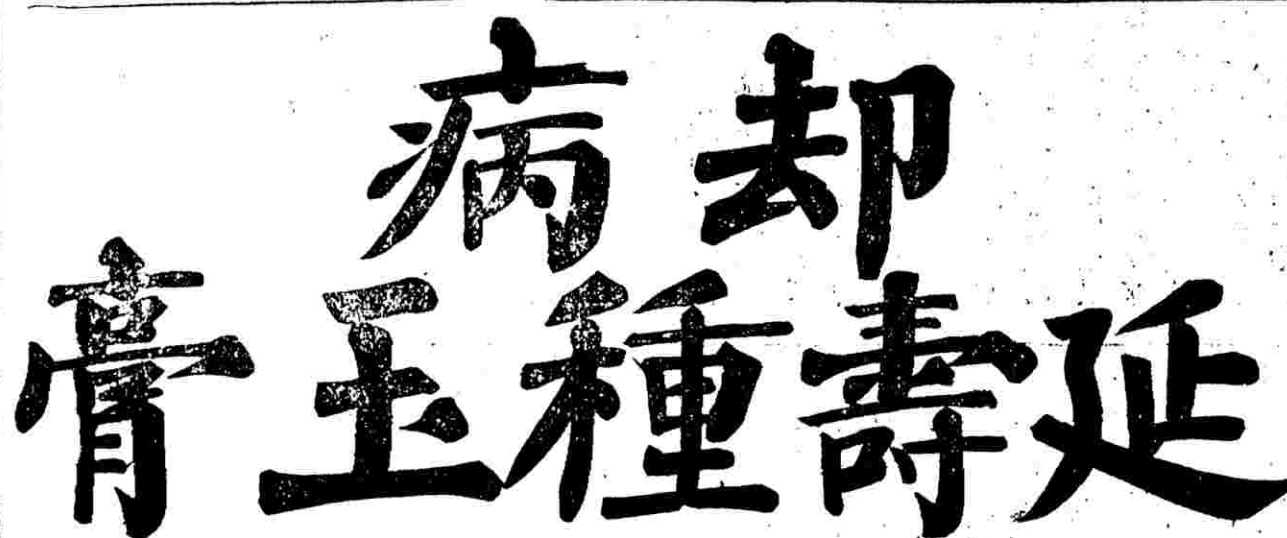 却病
延壽種玉膏